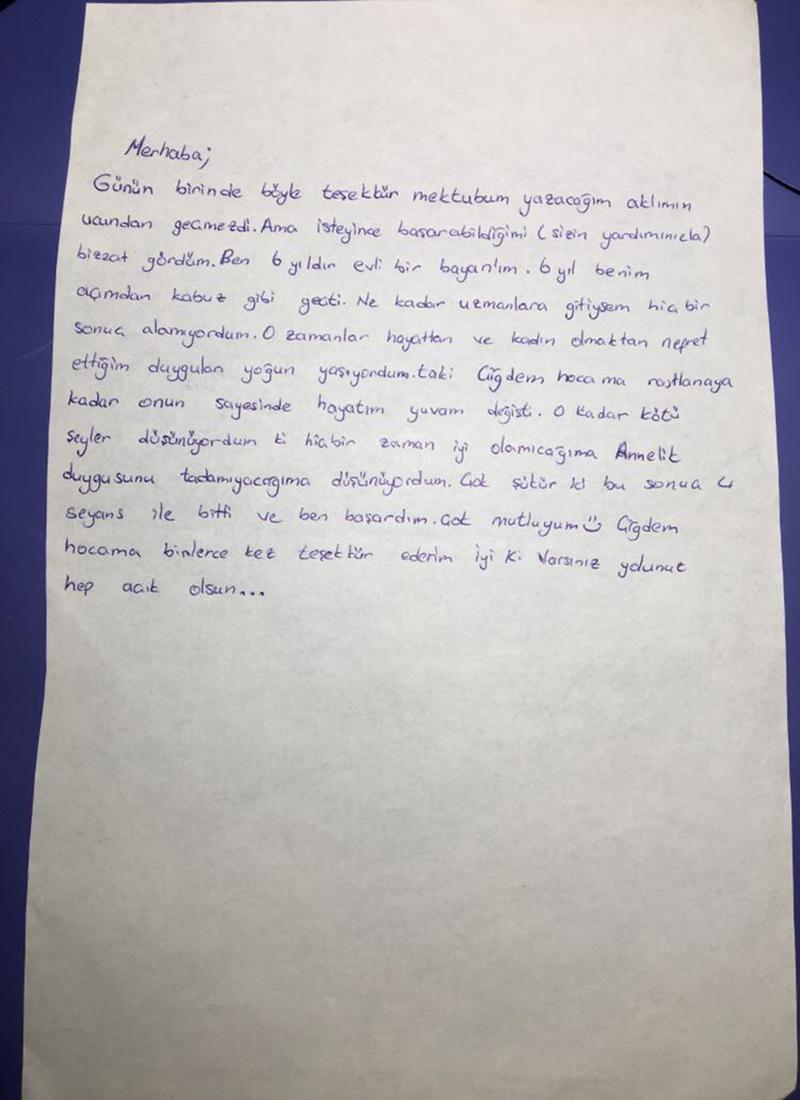 Merhaba;
Günün birinde böyle teşekkür mektubum yazacağım aklımın
ucundan geçmezdi. Ama isteyince başarabildiğimi (sizin yardımınızla)
bizzat gördüm. Ben 6 yıldın evli bir bayan'ım. 6 yıl benim
açımdan kabuz gibi geçti. Ne kadar uzmanlara gitiysem hiç bir
sonuç alamıyordum. O zamanlar hayattan ve kadın olmaktan nefret
ettiğim duyguları yoğun yaşıyordum. taki Çiğdem hoca ma rastlanaya
kadar onun sayesinde hayatım yuvam değişti. O kadar kötü
şeyler düşünüyordum ki hiçbir zaman iyi olamıcağıma Annelik
duygusunu tadamıyacağıma düşünüyordum. Çok şükür ki bu sonuç 4
seyans ile bitti ve ben başardım. Çok mutluyum☺ Çiğdem
hocama binlerce kez teşekkür ederim iyi ki Varsınız yolunuz
hep açık olsun...